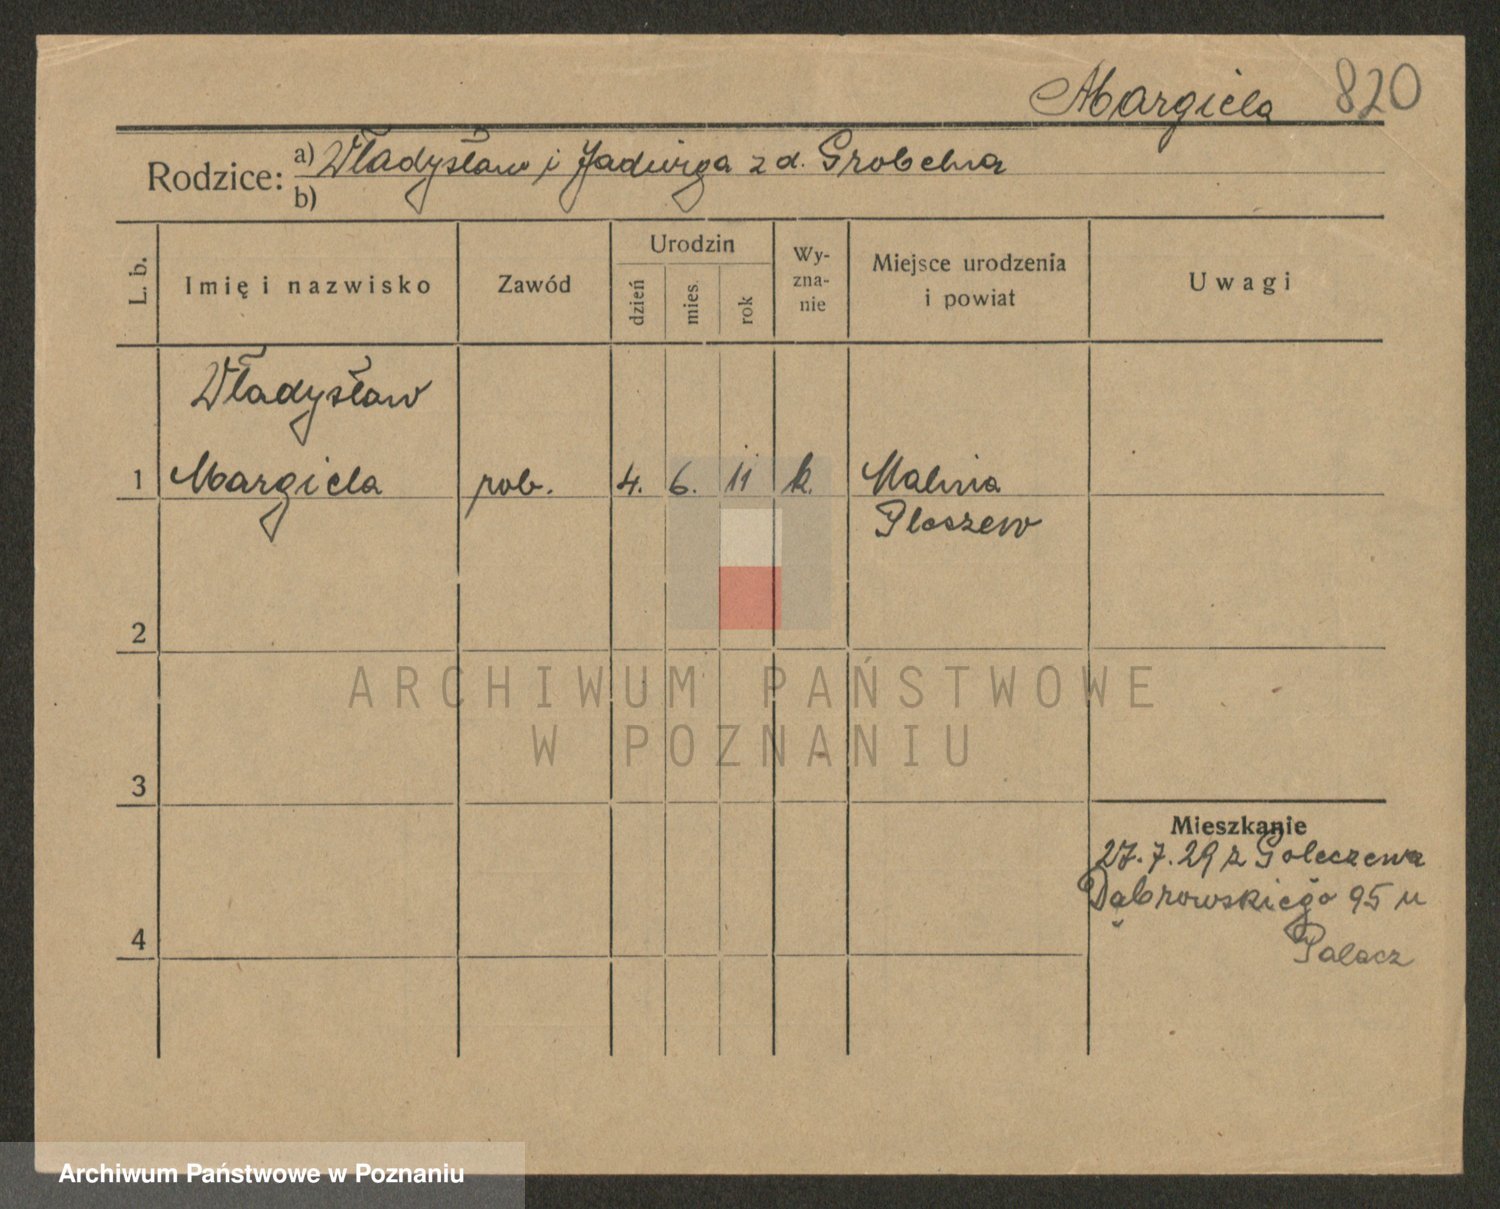 Margiela 820
Rodzice: a) Władysław i Jadwiga z d. Grobelna
b)
L. b. Imię i nazwisko Zawód Urodzin dzień mies. rok Wy-zna-nie Miejsce urodzenia i powiat Uwagi
Władysław
1 Margiela rob. 4. 6. 11 k. Malinia
Pleszew
2
ARCHIWUM PAŃSTWOWE
W POZNANIU
3
Mieszkanie
27.7.29 z Golęczewa
Dąbrowskiego 95 u
4
Palacz
Archiwum Państwowe w Poznaniu